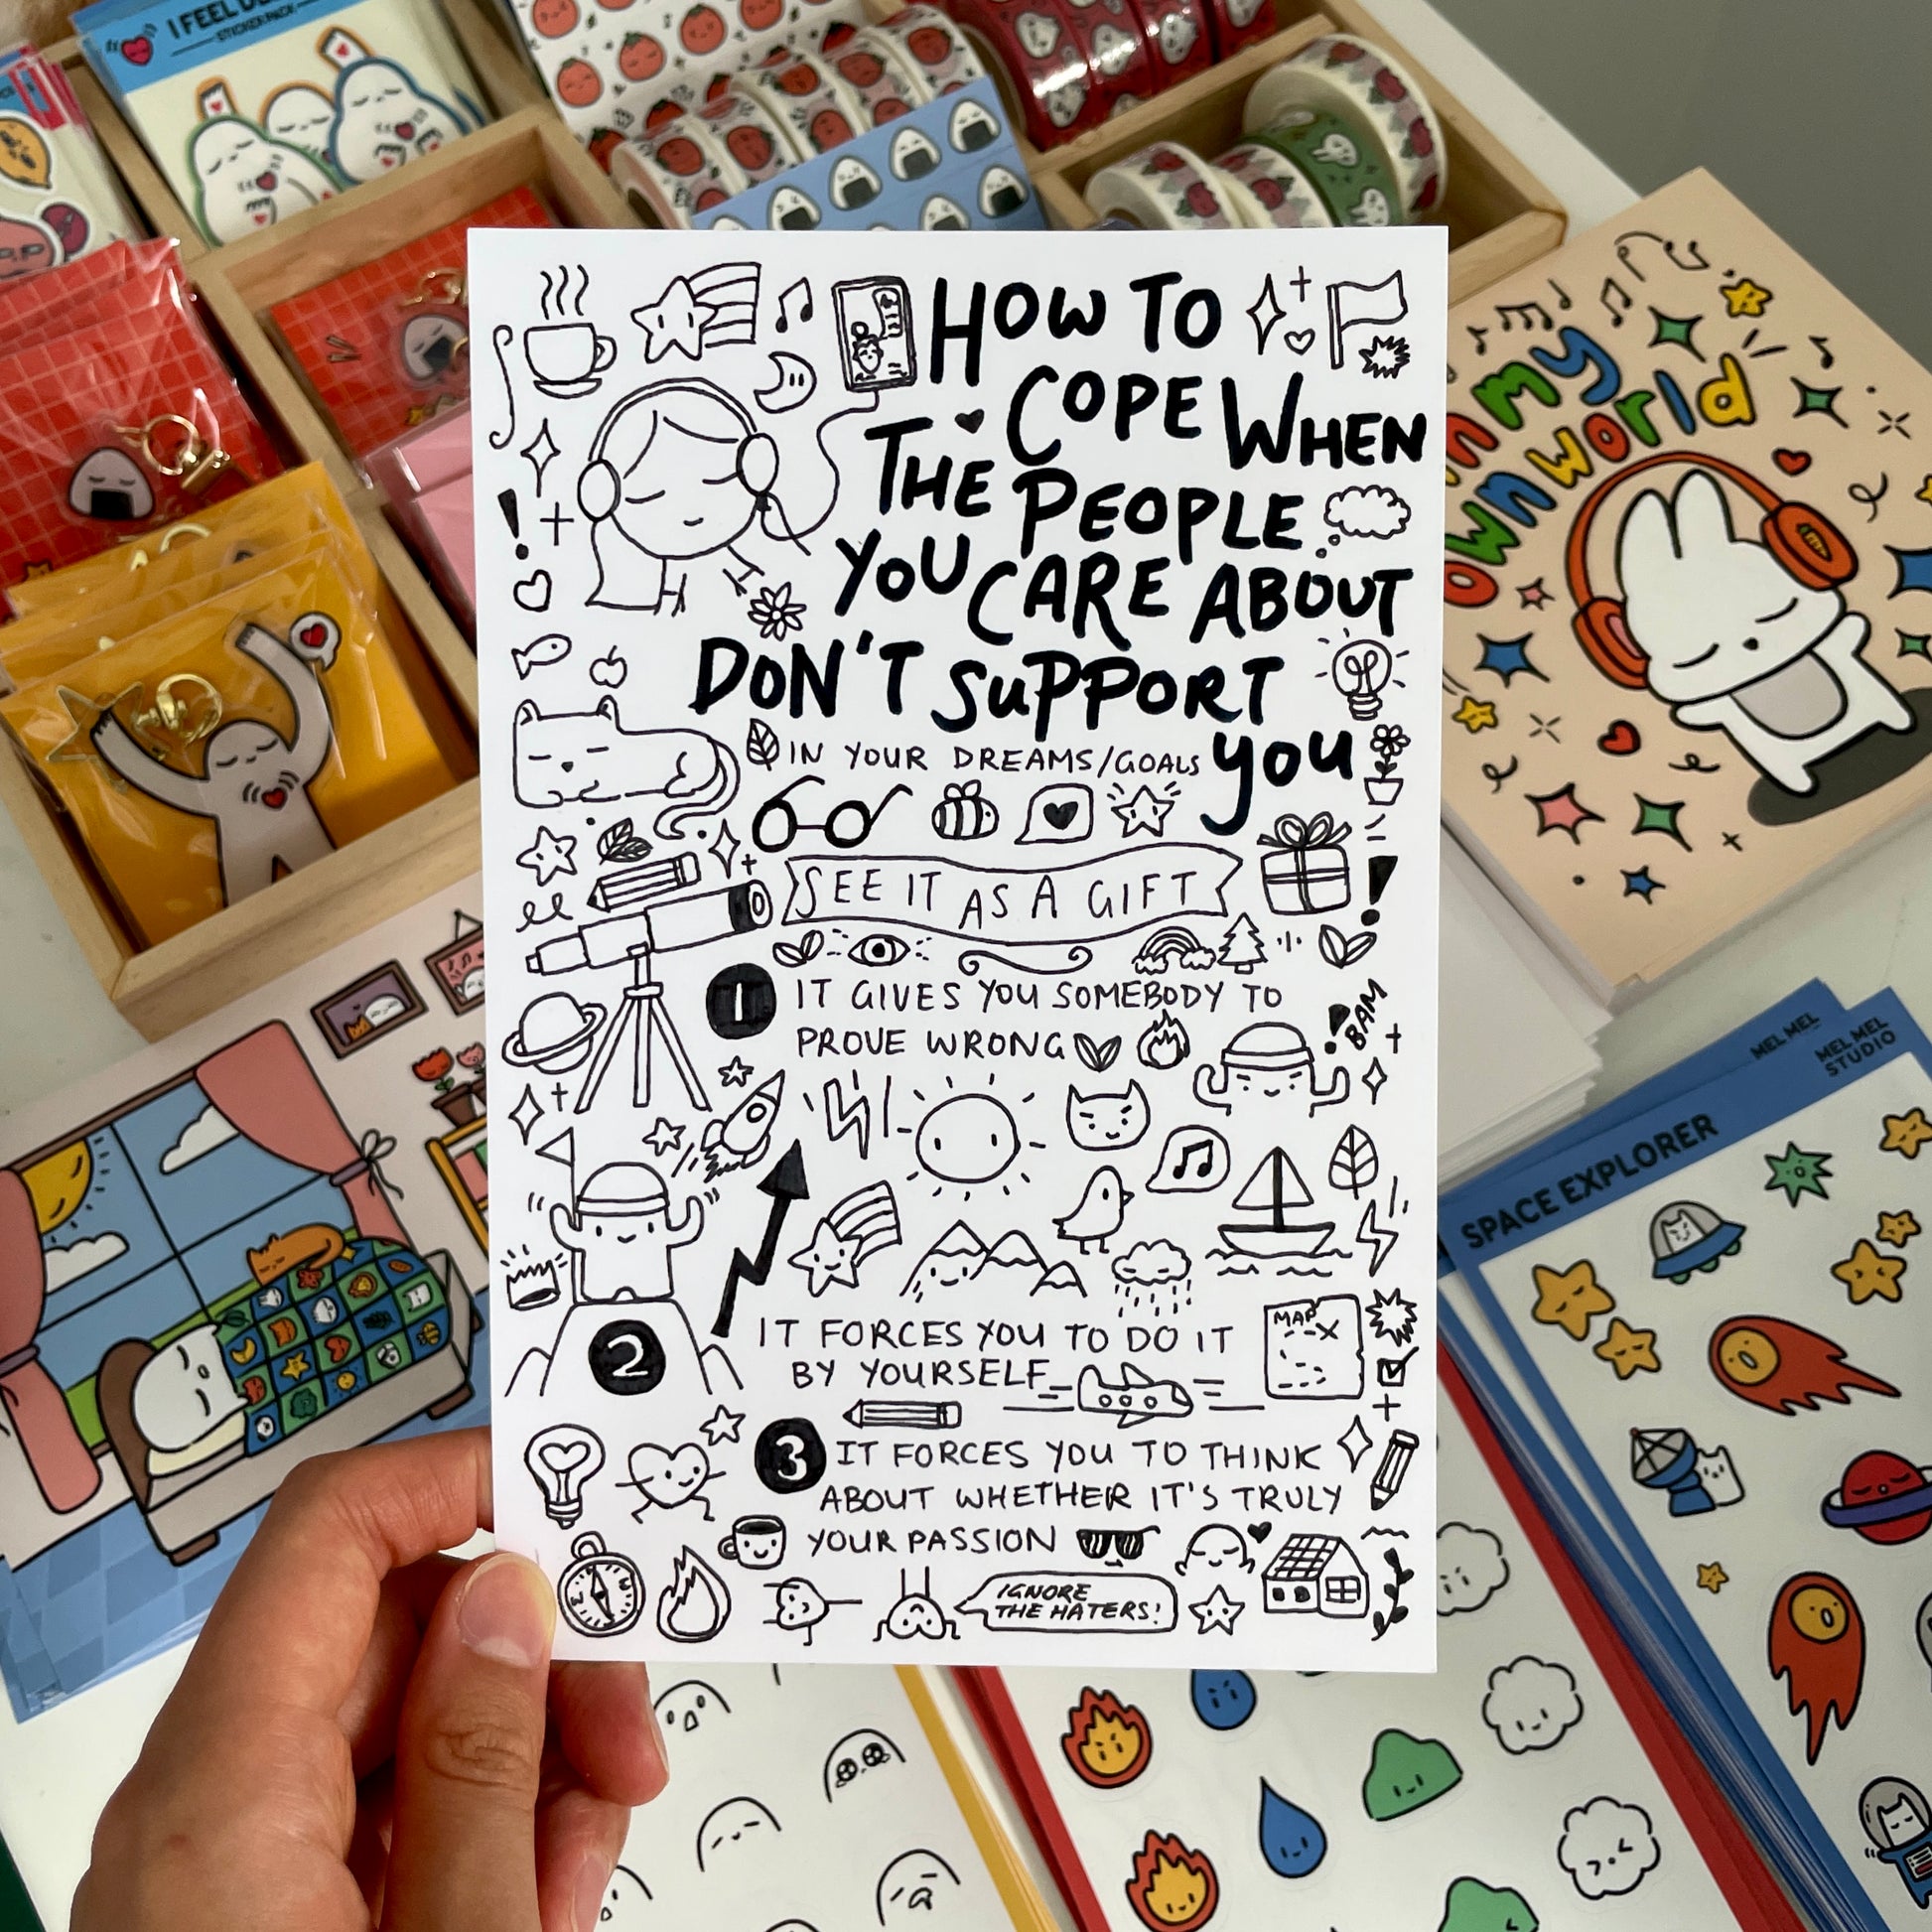 I FEEL
STICKER PACK
HOW TO
COPE WHEN
THE PEOPLE
YOU CARE ABOUT
DON'T SUPPORT
IN YOUR DREAMS/GOALS you
SEE IT AS A GIFT
1 IT GIVES YOU SOMEBODY TO
PROVE WRONG
BAM
2 IT FORCES YOU TO DO IT
BY YOURSELF
MAP
3 IT FORCES YOU TO THINK
ABOUT WHETHER IT'S TRULY
YOUR PASSION
IGNORE
THE HATERS!
my
own world
MEL MEL
MEL MEL
STUDIO
SPACE EXPLORER